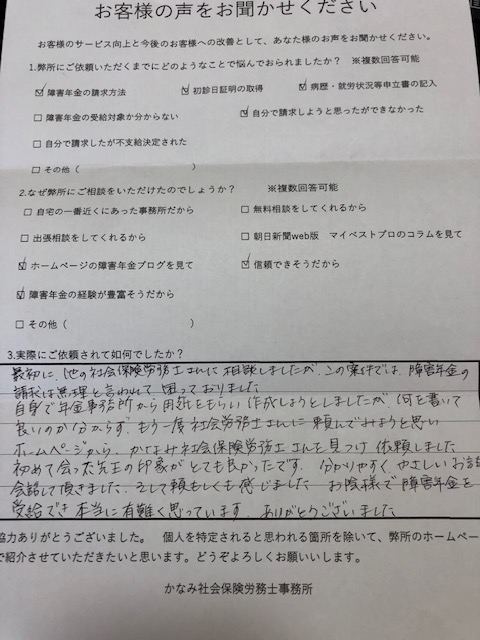 お客様の声をお聞かせください
お客様のサービス向上と今後のお客様への改善として、あなた様のお声をお聞かせください。
1.弊所にご依頼いただくまでにどのようなことで悩んでおられましたか？ ※複数回答可能
☑ 障害年金の請求方法 ☑ 初診日証明の取得 ☑ 病歴・就労状況等申立書の記入
□ 障害年金の受給対象か分からない ☑ 自分で請求しようと思ったができなかった
□ 自分で請求したが不支給決定された
□ その他（ ）
2.なぜ弊所にご相談をいただけたのでしょうか？ ※複数回答可能
□ 自宅の一番近くにあった事務所だから □ 無料相談をしてくれるから
□ 出張相談をしてくれるから □ 朝日新聞web版 マイベストプロのコラムを見て
☑ ホームページの障害年金ブログを見て ☑ 信頼できそうだから
☑ 障害年金の経験が豊富そうだから
□ その他（ ）
3.実際にご依頼されて如何でしたか？
最初に、他の社会保険労務士さんに相談しましたが、この案件では、障害年金の
請求は無理と言われて困っておりました
自身で年金事務所から用紙をもらい作成しようとしましたが、何を書いて
良いのか分からず、もう一度社会労務士さんに頼んでみようと思い
ホームページから、かなみ社会保険労務士さんを見つけ依頼しました
初めて会った先生の印象がとても良かったです。分かりやすくやさしいお話
会話して頂きました、そして頼もしくも感じました お陰様で障害年金を
受給でき本当に有難く思っています。ありがとうございました
協力ありがとうございました。 個人を特定されると思われる箇所を除いて、弊所のホームペー
で紹介させていただきたいと思います。どうぞよろしくお願いいします。
かなみ社会保険労務士事務所